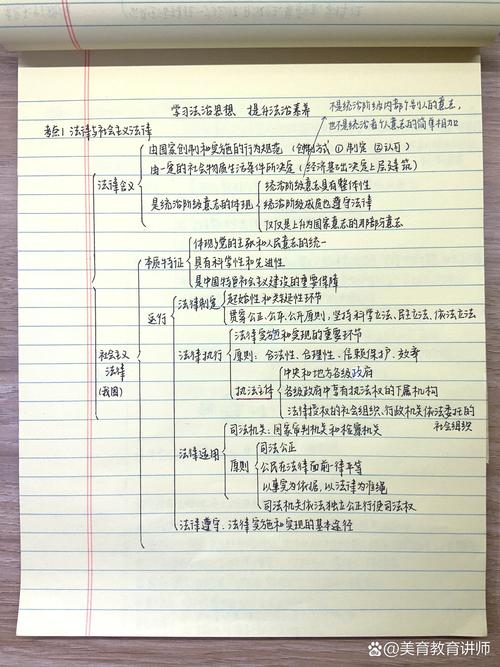 学习法治思想 提升法治素养
不是统治阶级内部个别人的意志,
也不是统治者个人意志的简单相加
考点1 法律与社会主义法律
法律含义
由国家创制和实施的行为规范 (创制方式 ①制定 ②认可)
由一定的社会物质生活条件所决定 (经济基础决定上层建筑)
是统治阶级意志的体现
统治阶级意志具有整体性
统治阶级成员也遵守法律
仅仅是上升为国家意志的那部分意志
社会主义
法律
(我国)
本质特征
体现了党的主张和人民意志的统一
具有科学性和先进性
是中国特色社会主义建设的重要保障
运行
法律制定
起始性和关键性环节
贯穿公正、公平、公开原则, 坚持科学立法、民主立法、依法立法
法律执行
法律实施和实现的重要环节
原则: 合法性、合理性、信赖保护、效率
执法主体
中央和地方各级政府
各级政府中享有执法权的下属机构
法律授权的社会组织、行政机关依法委托的
社会组织
法律适用
司法机关: 国家审判机关和检察机关
原则
司法公正
公民在法律面前一律平等
以事实为依据, 以法律为准绳
司法机关依法独立公正行使司法权
法律遵守: 法律实施和实现的基本途径
@美育教育讲师